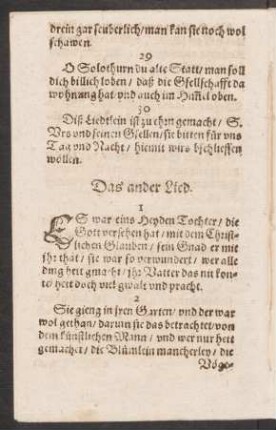 drein gar seuberlich / man kan sie noch wol
schawen.
29
O Solothurn du alte Statt / man soll
dich billich loben / daß die Gsellschafft da
wohnung hat vnd auch im Himel oben.
30
Diß Liedtlein ist zu ehrn gemacht / S.
Vrs vnd seinen Gsellen / sie bitten für vns
Tag vnd Nacht / hiemit wirs bschliessen
wöllen.
Das ander Lied.
1
ES war eins Heyden Tochter / die
Gott versehen hat / mit dem Christ-
lichen Glauben / sein Gnad er mit
jhr that / sie war so verwundert / wer alle
ding hett gmacht / jhr Vatter das nit kon-
te / hett doch viel gwalt vnd pracht.
2
Sie gieng in jren Garten / vnd der war
wol gethan / darinn sie das betrachtet / von
dem künstlichen Mann / vnd wer nur hett
gemachet / die Blümlein mancherley / die
Vöge-